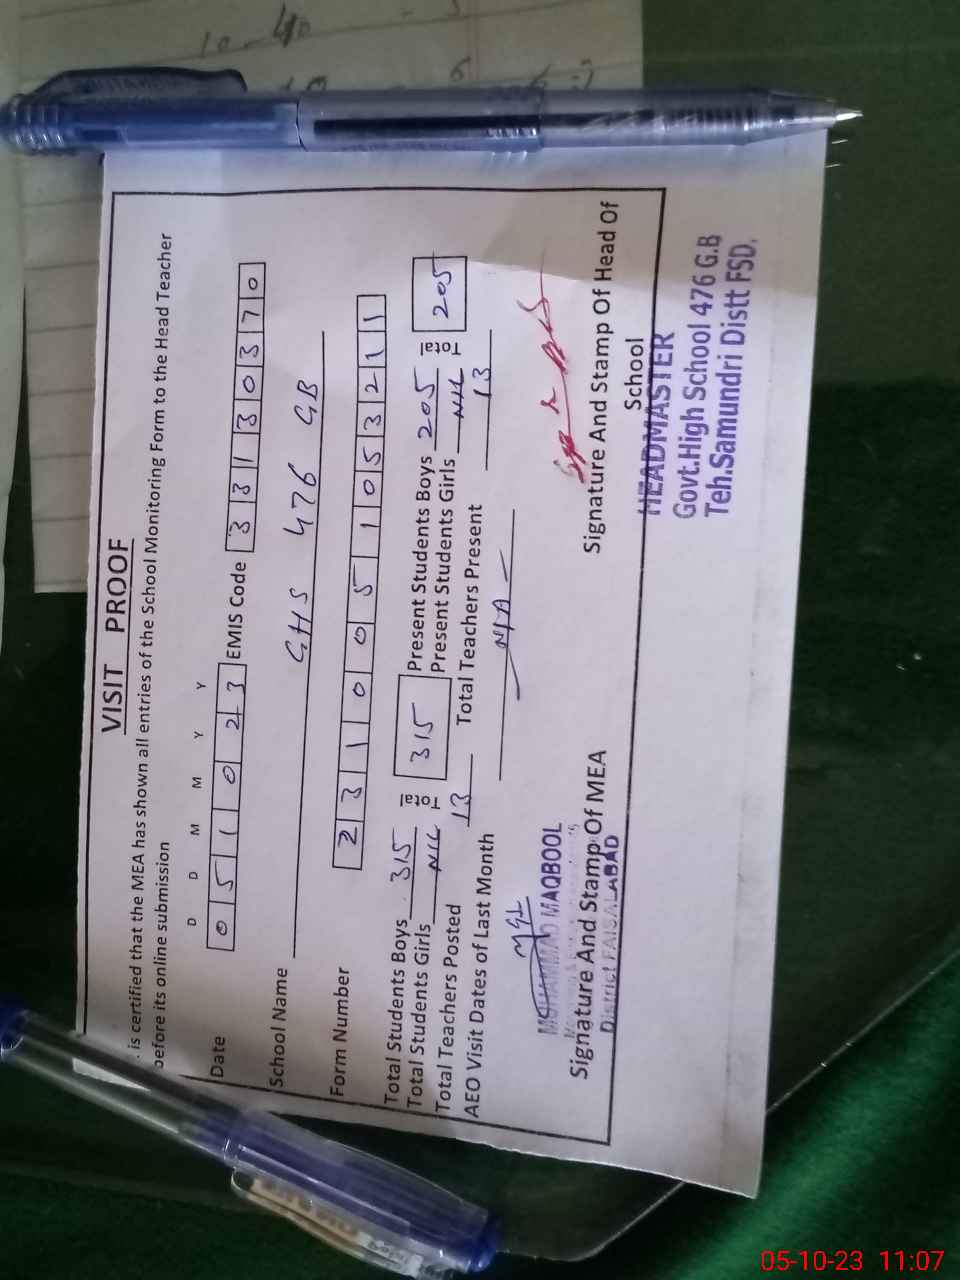 VISIT PROOF
is certified that the MEA has shown all entries of the School Monitoring Form to the Head Teacher
before its online submission
D D M M Y Y
Date 0 5 1 0 2 3 EMIS Code 3 3 1 3 0 3 7 0
School Name GHS 476 GB
Form Number 2 3 1 0 0 5 1 0 5 3 2 1 1
Total Students Boys 315 Total 315 Present Students Boys 205 Total 205
Total Students Girls NIL Present Students Girls NIL
Total Teachers Posted 13 Total Teachers Present 13
AEO Visit Dates of Last Month N/A
MUHAMMAD MAQBOOL
Signature And Stamp Of MEA
District FAISALABAD
Signature And Stamp Of Head Of
School
HEADMASTER
Govt.High School 476 G.B
Teh.Samundri Distt FSD.
10-40
05-10-23 11:07